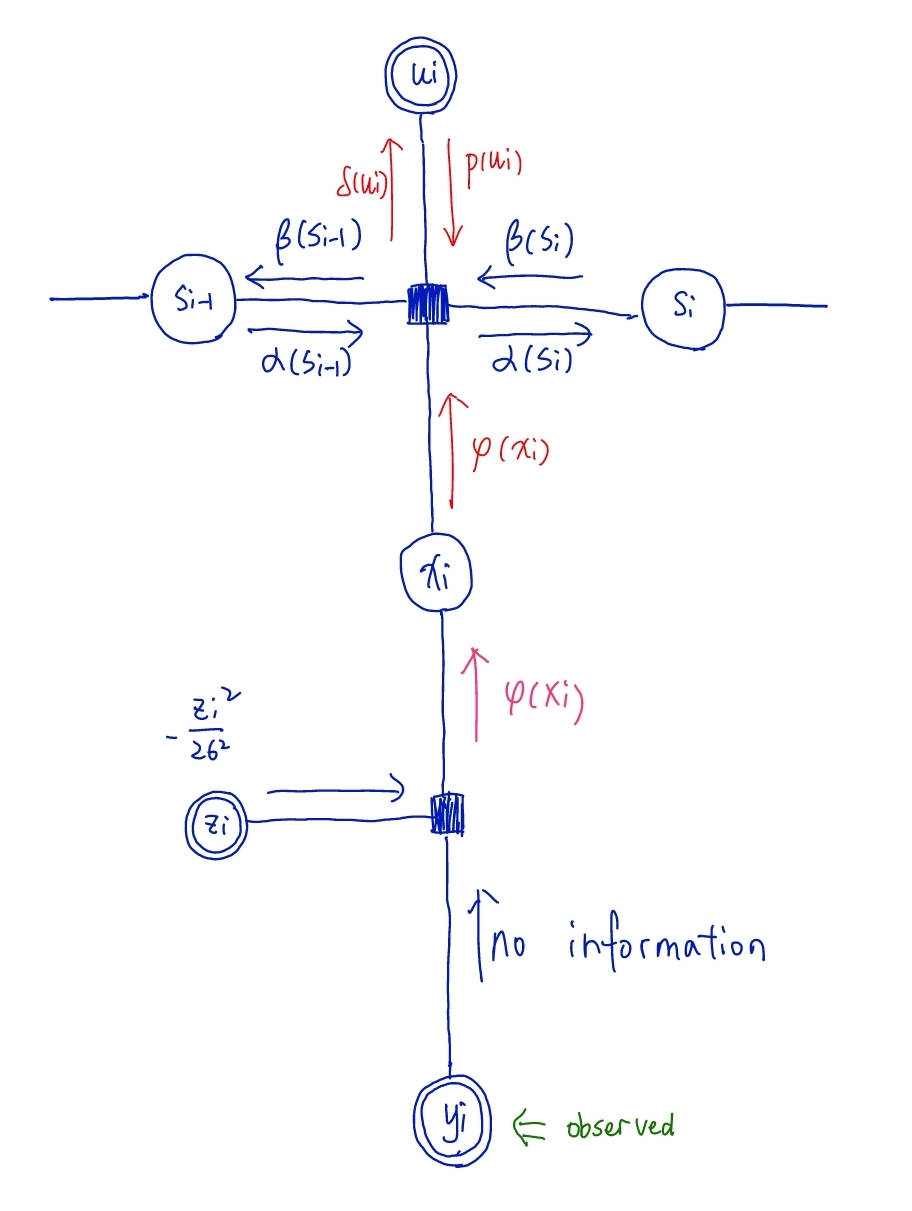 ui
δ(ui)
p(ui)
β(Si-1)
β(Si)
Si-1
Si
α(Si-1)
α(Si)
φ(xi)
xi
φ(xi)
- zi²
2σ²
zi
no information
yi
⇐ observed